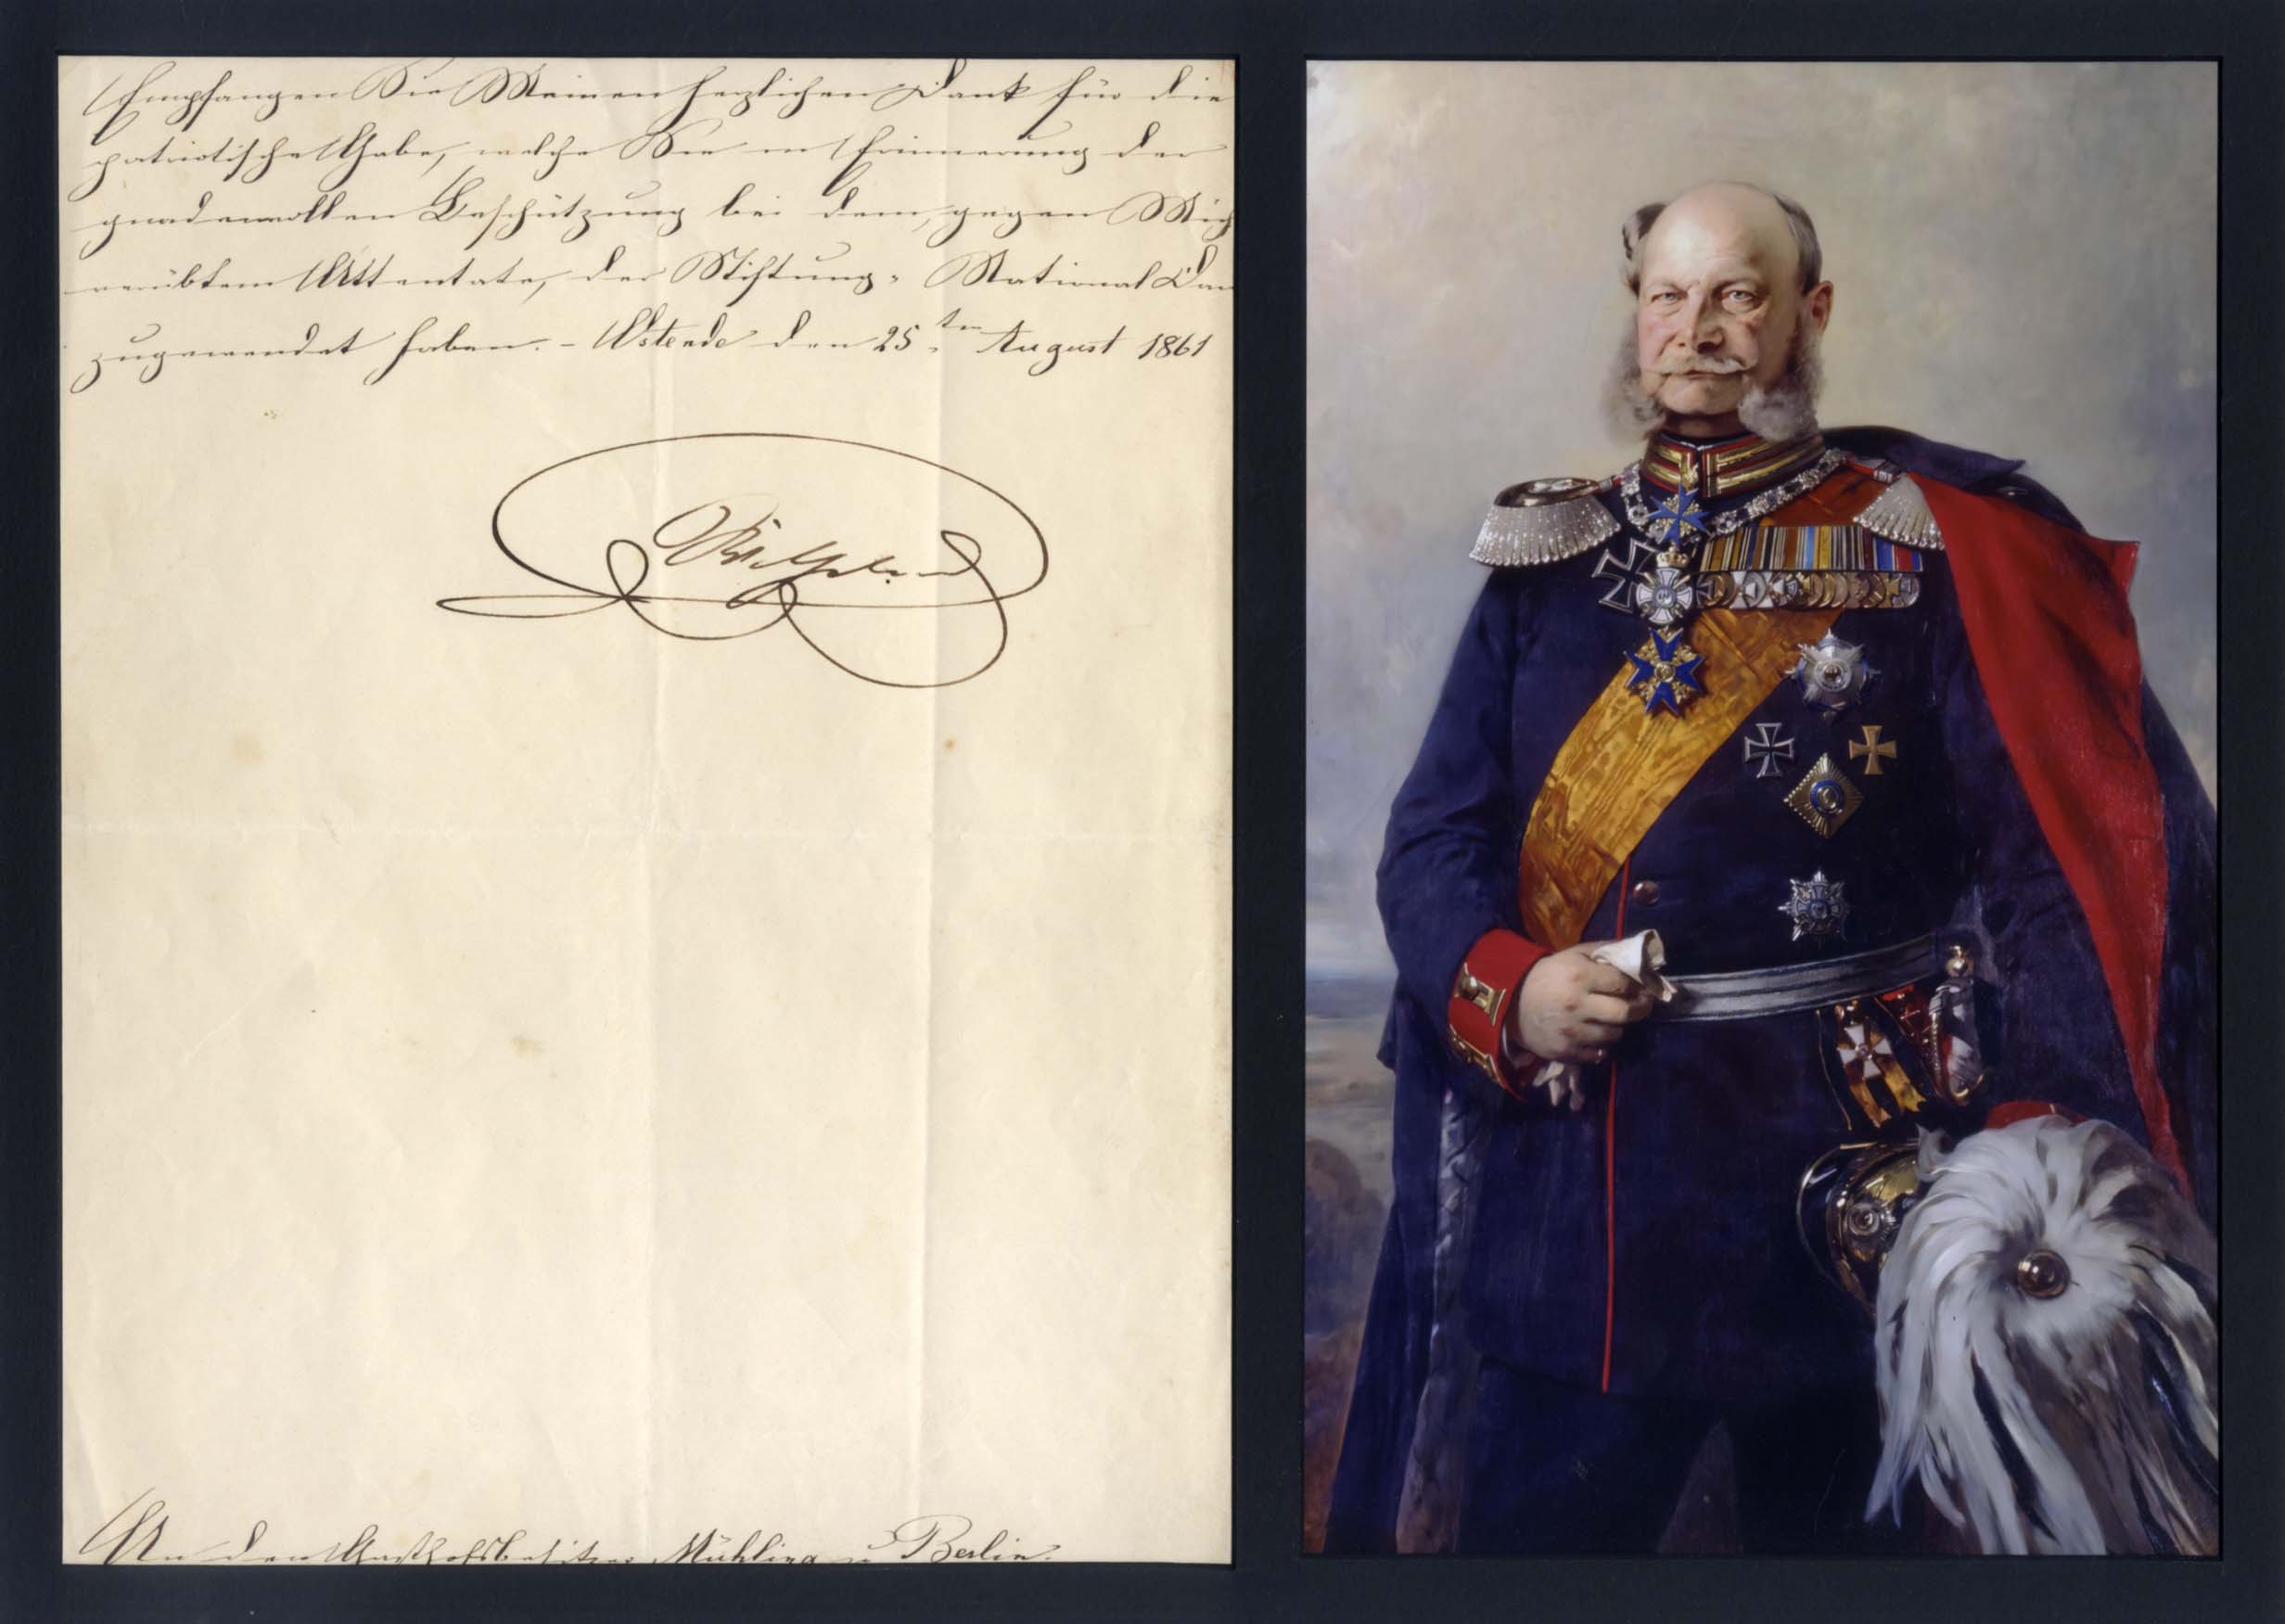 Empfangen Sie Meinen herzlichen Dank für die
patriotische Gabe, welche Sie in Erinnerung der
gnadenvollen Beschützung bei dem, gegen Mich
verübtem Attentate, der Stiftung, National Dan
zugewendet haben. – Ostende den 25ten August 1861
Wilhelm
An den Gasthofsbesitzer Mühling zu Berlin.